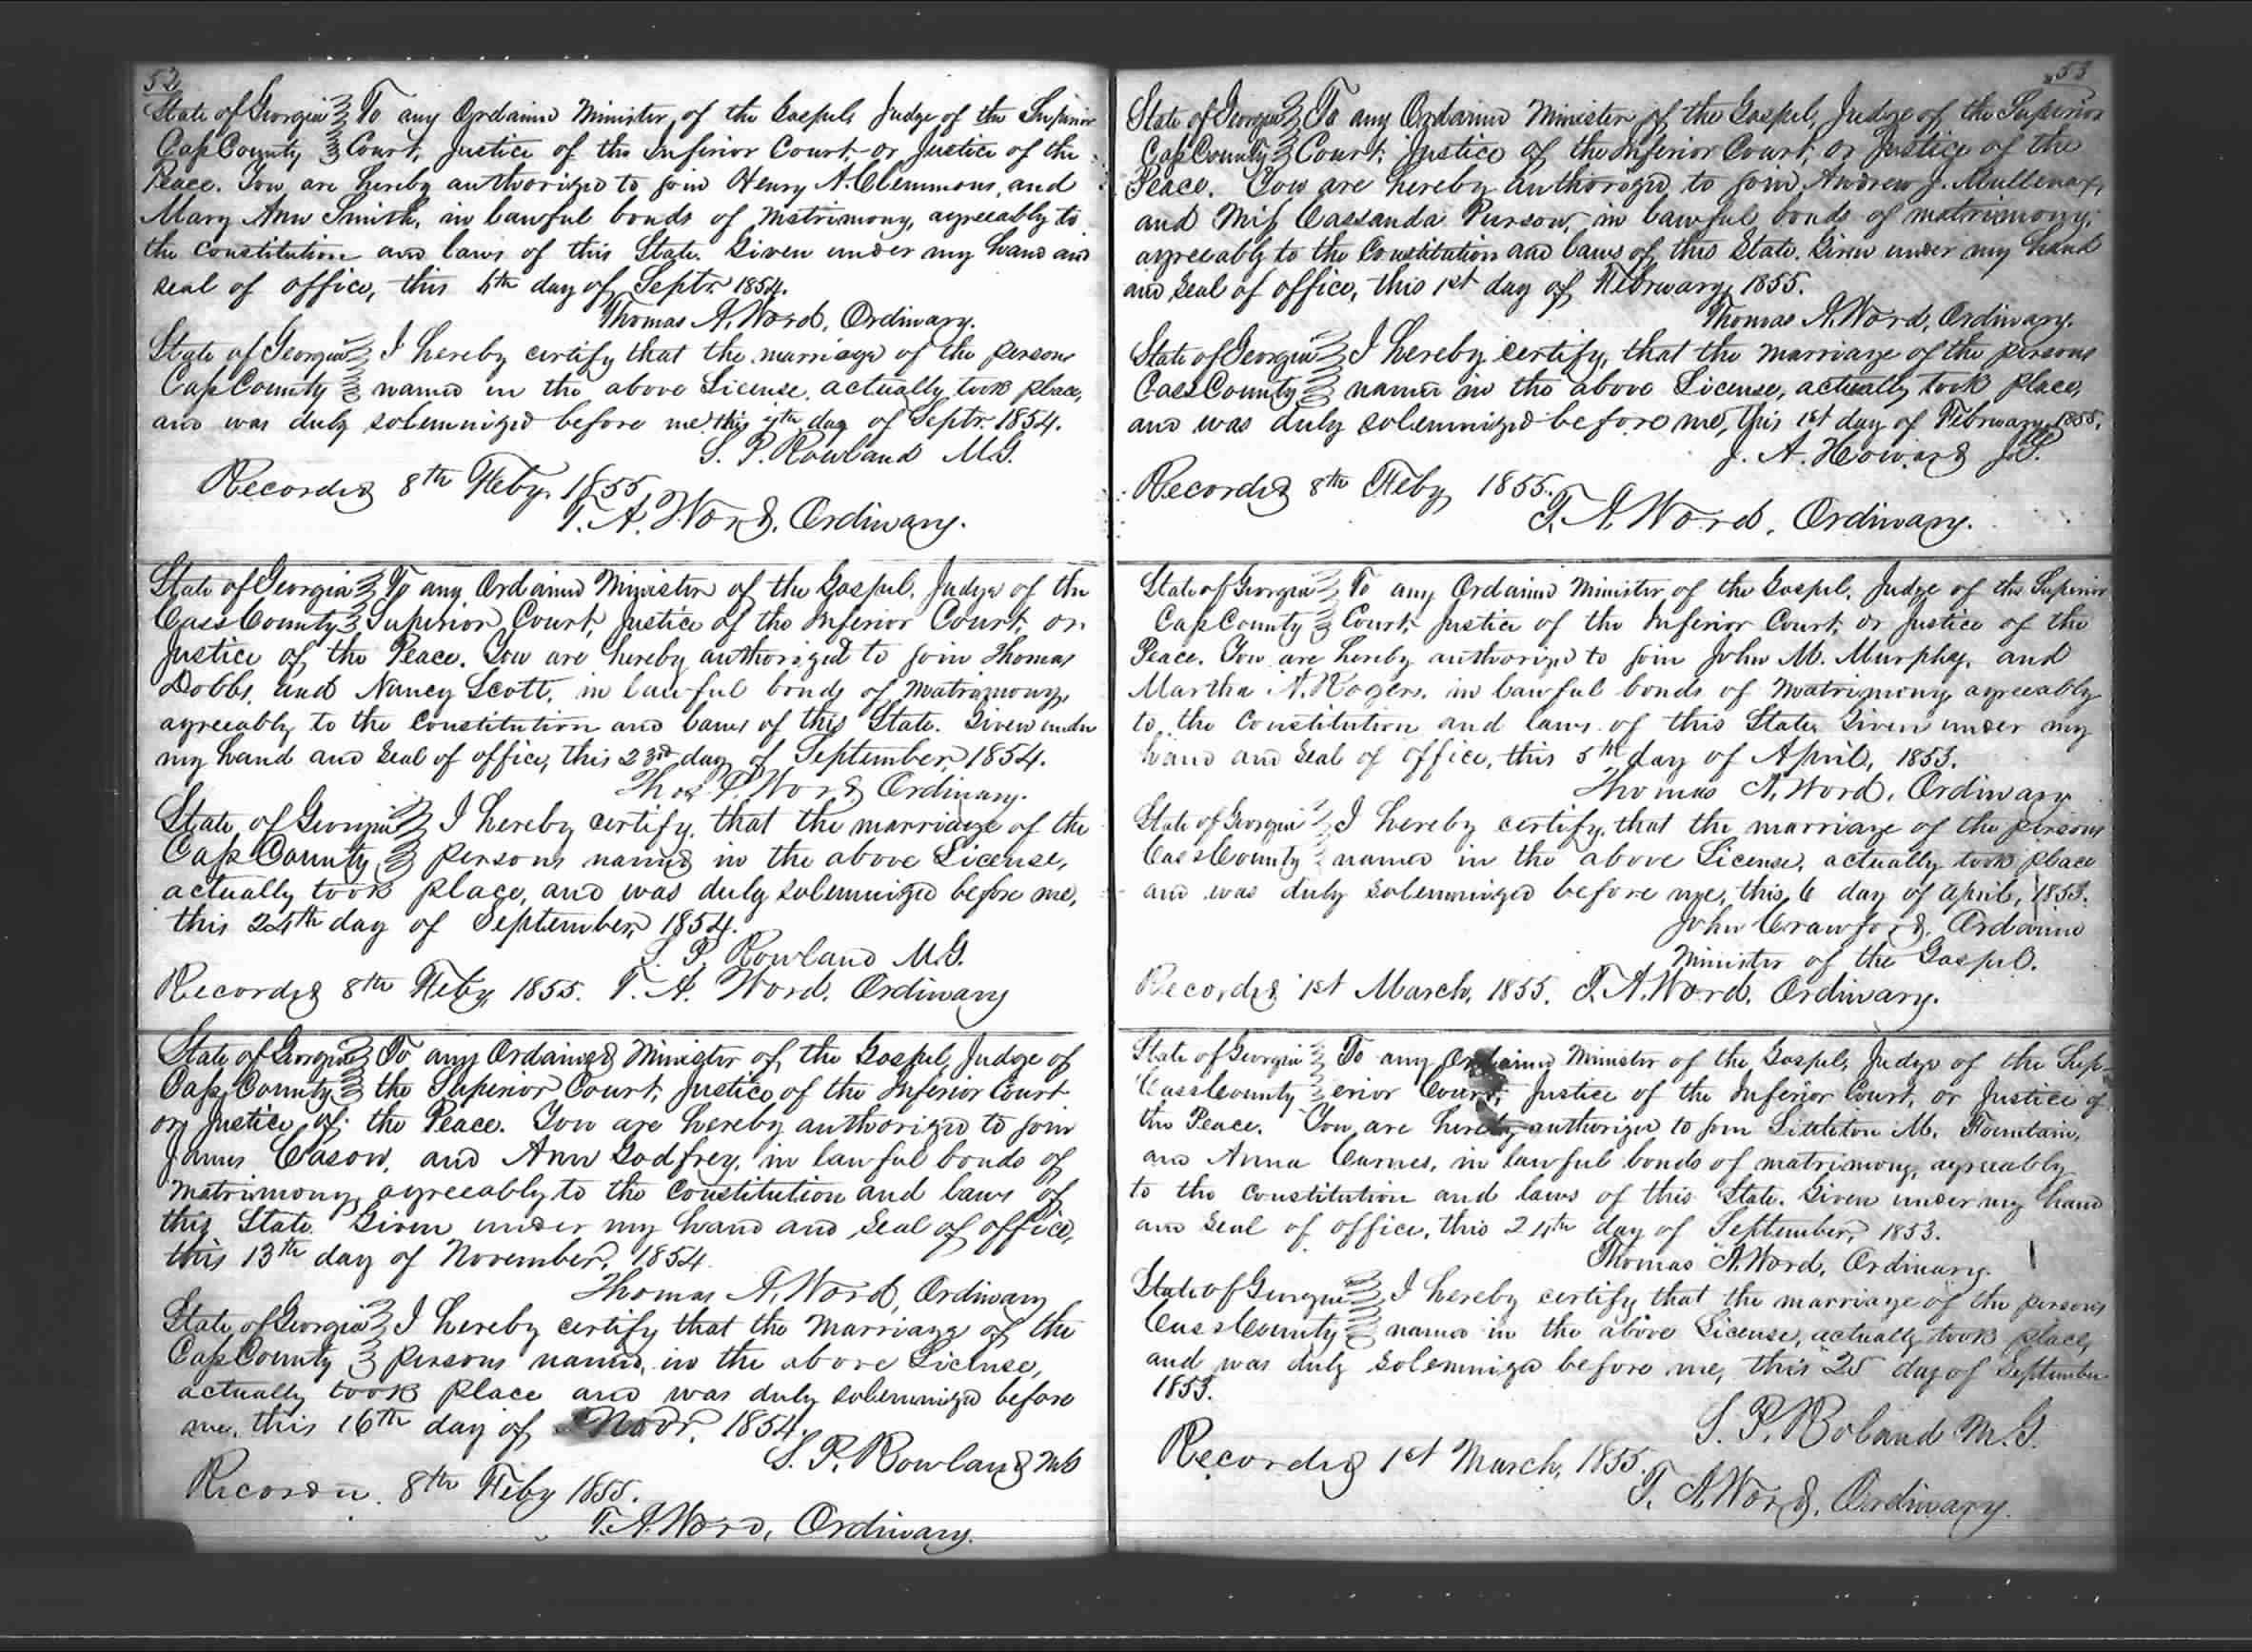 52
State of Georgia To any Ordained Minister, of the Gospel, Judge of the Superior
Cass County Court, Justice of the Inferior Court, or Justice of the
Peace. You are hereby authorized to join Henry A. Clemmons, and
Mary Ann Smith, in lawful bonds of matrimony, agreeably to
the constitution and laws of this State. Given under my hand and
seal of office, this 4th day of Septr. 1854.
Thomas A. Word, Ordinary.
State of Georgia I hereby certify that the marriage of the persons
Cass County named in the above License, actually took place,
and was duly solemnized before me this day of Septr. 1854.
S. P. Rowland M.G.
Recorded 8th Feby. 1855,
T. A. Word, Ordinary.
State of Georgia To any Ordained Minister of the Gospel, Judge of the
Cass County Superior Court, Justice of the Inferior Court, or
Justice of the Peace. You are hereby authorized to join Thomas
Dobbs, and Nancy Scott, in lawful bonds of matrimony,
agreeably to the constitution and laws of this State. Given under
my hand and seal of office, this 23rd day of September, 1854.
Thos. A. Word Ordinary.
State of Georgia I hereby certify, that the marriage of the
Cass County persons named in the above License,
actually took place, and was duly solemnized before me,
this 24th day of September, 1854.
S. P. Rowland M.G.
Recorded 8th Feby, 1855. T. A. Word, Ordinary
State of Georgia To any Ordained Minister of the Gospel, Judge of
Cass County the Superior Court, Justice of the Inferior Court
or Justice of the Peace. You are hereby authorized to join
James Cason, and Ann Godfrey, in lawful bonds of
matrimony, agreeably to the constitution and laws of
this State. Given under my hand and seal of office,
this 13th day of November, 1854.
Thomas A. Word, Ordinary
State of Georgia I hereby certify that the marriage of the
Cass County persons named, in the above License,
actually took place and was duly solemnized before
me, this 16th day of Novr. 1854.
S. P. Rowland MG
Recorded. 8th Feby 1855.
T. A. Word, Ordinary.
53
State of Georgia To any Ordained Minister of the Gospel, Judge of the Superior
Cass County Court, Justice of the Inferior Court, or Justice of the
Peace. You are hereby authorized, to join Andrew J. Mullenax,
and Miss Cassanda Purson, in lawful bonds of matrimony,
agreeably to the Constitution and laws of this State. Given under my hand
and seal of office, this 1st day of February, 1855.
Thomas A. Word, Ordinary.
State of Georgia I hereby certify, that the marriage of the persons
Cass County named in the above License, actually took place,
and was duly solemnized before me, this 1st day of February, 1855.
J. A. Howard J.P.
Recorded 8th Feby 1855.
T. A. Word, Ordinary.
State of Georgia To any Ordained Minister of the Gospel, Judge of the Superior
Cass County Court, Justice of the Inferior Court, or Justice of the
Peace. You are hereby authorized to join John M. Murphy, and
Martha A. Rogers, in lawful bonds of matrimony, agreeably
to the constitution and laws of this State. Given under my
hand and seal of office, this 5th day of April, 1853.
Thomas A. Word, Ordinary
State of Georgia I hereby certify, that the marriage of the persons
Cass County named in the above License, actually took place
and was duly solemnized before me, this, 6 day of April, 1853.
John Crawford, Ordained
Minister of the Gospel.
Recorded 1st March, 1855. T. A. Word, Ordinary.
State of Georgia To any Ordained Minister of the Gospel, Judge of the Sup-
Cass County erior Court, Justice of the Inferior Court, or Justice of
the Peace. You are hereby authorized to join Littleton M. Fountain,
and Anna Carnes, in lawful bonds of matrimony, agreeably
to the constitution and laws of this State. Given under my hand
and seal of office, this 24th day of September, 1853.
Thomas A. Word, Ordinary.
State of Georgia I hereby certify that the marriage of the persons
Cass County named in the above License, actually took place,
and was duly solemnized before me, this 25 day of September
1853.
S. P. Roland M.G.
Recorded 1st March, 1855.
T. A. Word, Ordinary.